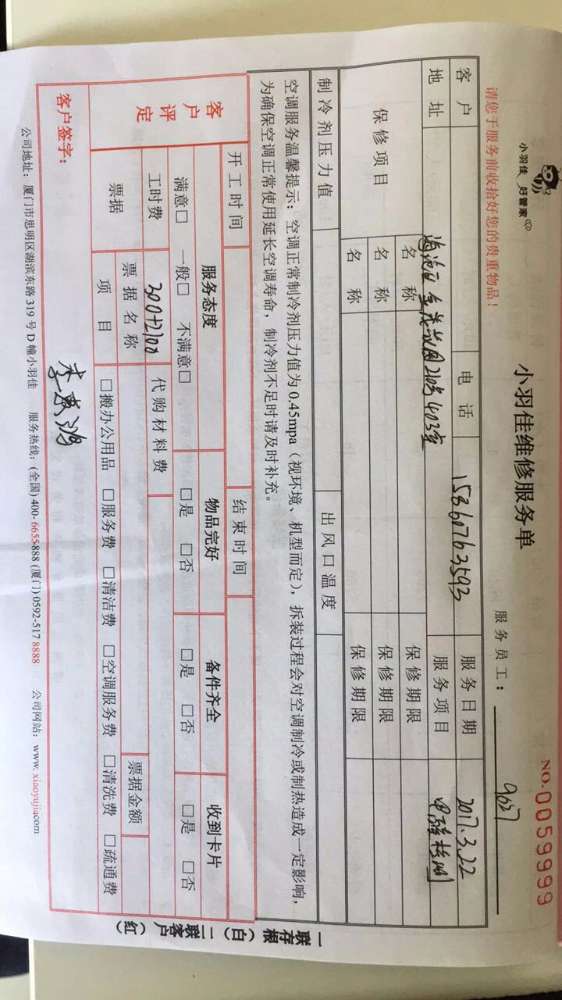 小羽佳 好管家
请您于服务前收拾好您的贵重物品！
小羽佳维修服务单
NO.0059999
服务员工：9027
客户 电话 15860763593 服务日期 2017.3.22
地址 海沧区 花园210号403室 服务项目 甲醛检测
保修项目 名称 保修期限
名称 保修期限
名称 保修期限
制冷剂压力值 出风口温度
空调服务温馨提示：空调正常制冷剂压力值为0.45mpa（视环境、机型而定），拆装过程会对空调制冷或制热造成一定影响，
为确保空调正常使用延长空调寿命，制冷剂不足时请及时补充。
开工时间 结束时间
客户评定 服务态度 物品完好 备件齐全 收到卡片
满意□ 一般□ 不满意□ □是 □否 □是 □否 □是 □否
工时费 代购材料费
票据 票据名称 票据金额
项目 □搬办公用品 □服务费 □清洁费 □空调服务费 □清洗费 □疏通费
客户签字：
公司地址：厦门市思明区湖滨东路319号D幢小羽佳 服务热线：(全国) 400-6655-888 (厦门) 0592-517 8888 公司网站：www.xiaoyujia.com
一联存根（白）二联客户（红）